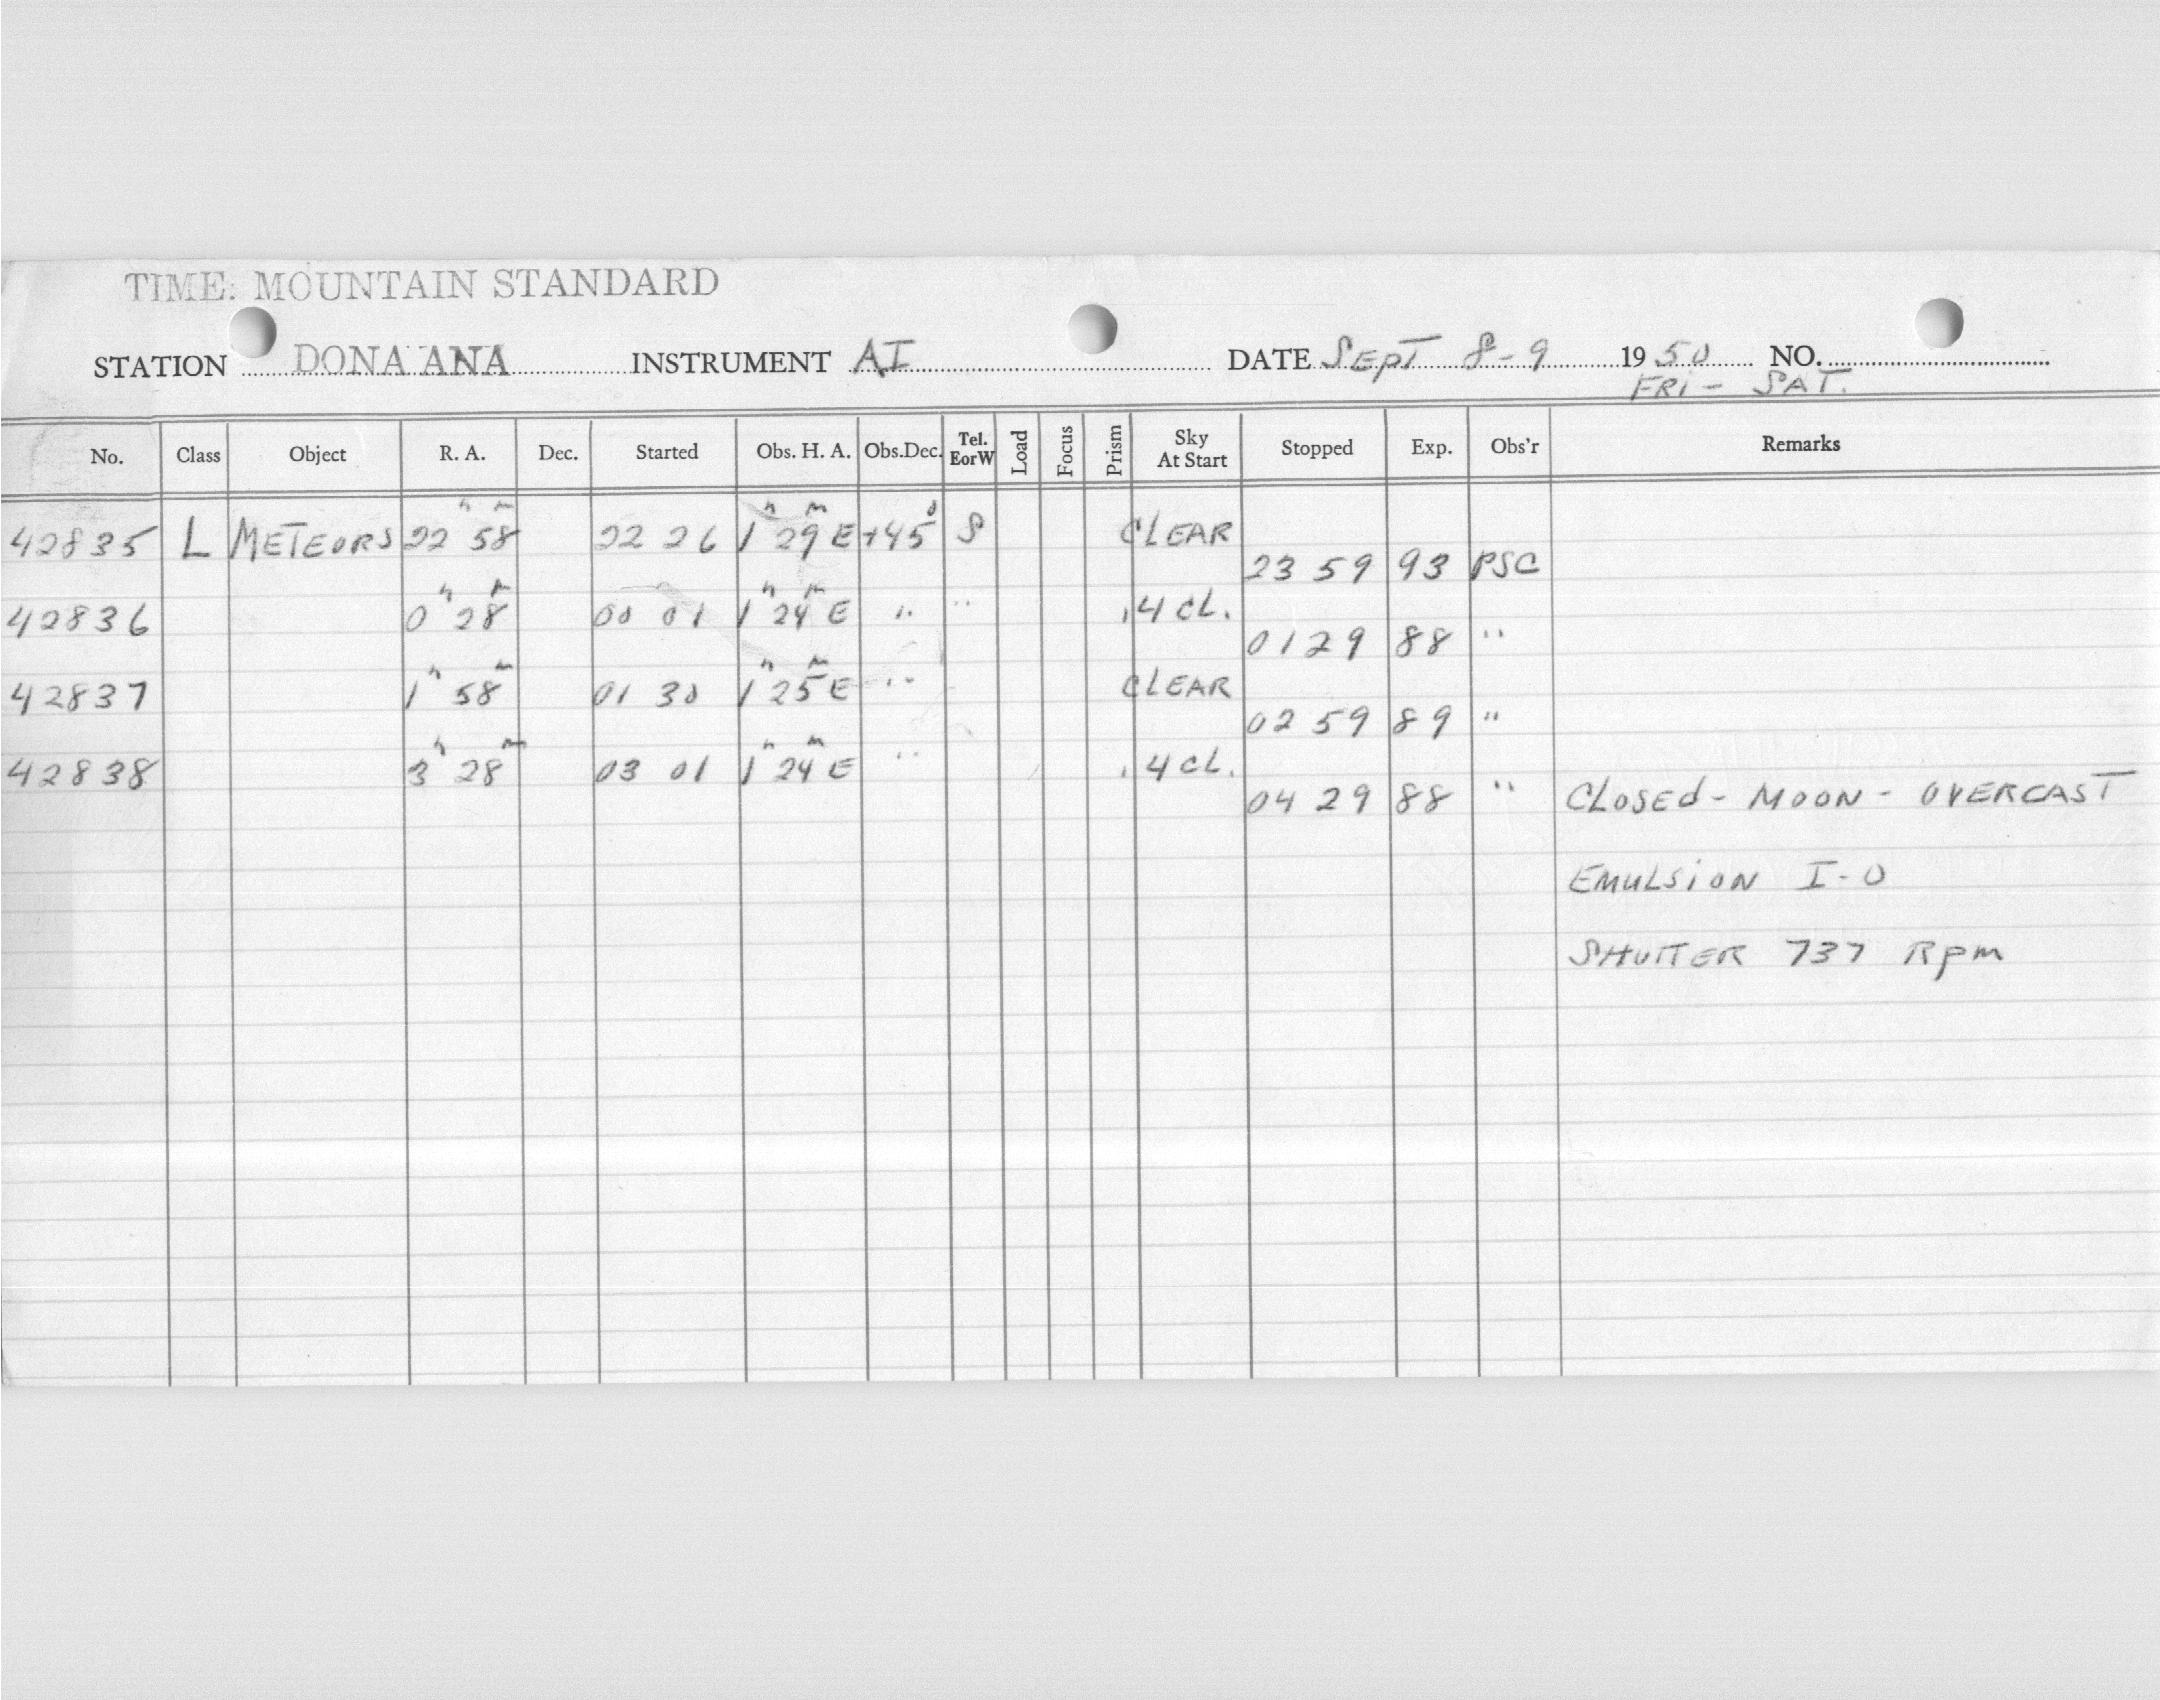 TIME: MOUNTAIN STANDARD
STATION DONA ANA INSTRUMENT AI DATE SEPT 8-9 1950 NO.
FRI - SAT.
No. Class Object R. A. Dec. Started Obs. H. A. Obs.Dec. Tel. EorW Load Focus Prism Sky At Start Stopped Exp. Obs'r Remarks
42835 L METEORS 22h 58m 22 26 1h 29m E +45° S CLEAR
23 59 93 PSC
42836 0h 28m 00 01 1h 24m E " " .4 CL.
01 29 88 "
42837 1h 58m 01 30 1h 25m E " CLEAR
02 59 89 "
42838 3h 28m 03 01 1h 24m E " .4 CL.
04 29 88 " CLOSEd - MOON - OVERCAST
EMULSiON I-O
SHUTTER 737 Rpm